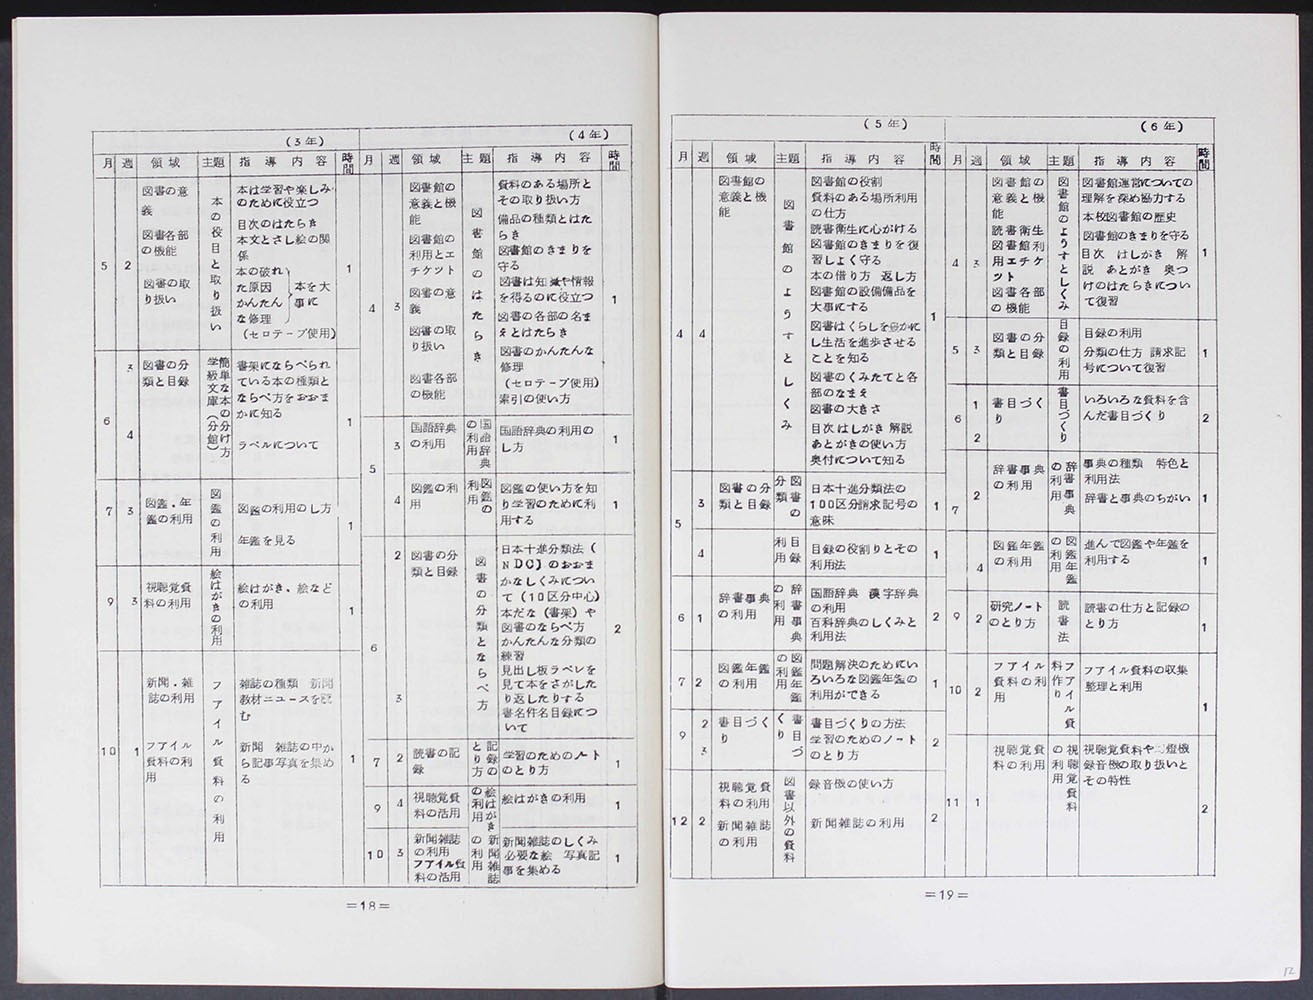 (3年)
月 週 領域 主題 指導内容 時間
5 2
図書の意
義
図書各部
の機能
図書の取
り扱い
本の役目と取り扱い
本は学習や楽しみ
のために役立つ
目次のはたらき
本文とさし絵の関
係
本の破れ
た原因
かんたん
な修理
本を大
事に
(セロテープ使用)
1
6
3
4
図書の分
類と目録
簡単な本の分け方
学級文庫(分館)
書架にならべられ
ている本の種類と
ならべ方をおおま
かに知る
ラベルについて
1
7 3
図鑑.年
鑑の利用
図鑑の利用
図鑑の利用のし方
年鑑を見る
1
9 3
視聴覚資
料の利用
絵はがきの利用
絵はがき、絵など
の利用
1
10 1
新聞.雑
誌の利用
フアイル
資料の利
用
フアイル資料の利用
雑誌の種類 新聞
教材ニュースを読
む
新聞 雑誌の中か
ら記事写真を集め
る
1
(4年)
月 週 領域 主題 指導内容 時間
4 3
図書館の
意義と機
能
図書館の
利用とエ
チケット
図書の意
義
図書の取
り扱い
図書各部
の機能
図書館のはたらき
資料のある場所と
その取り扱い方
備品の種類とはた
らき
図書館のきまりを
守る
図書は知識や情報
を得るのに役立つ
図書の各部の名ま
えとはたらき
図書のかんたんな
修理
(セロテープ使用)
索引の使い方
1
5
3
国語辞典
の利用
国語辞典
の利用
国語辞典の利用の
し方
1
4
図鑑の利
用
図鑑の
利用
図鑑の使い方を知
り学習のために利
用する
1
6
2
3
図書の分
類と目録
図書の分類とならべ方
日本十進分類法(
NDC)のおおま
かなしくみについ
て(10区分中心)
本だな(書架)や
図書のならべ方
かんたんな分類の
練習
見出し板ラベルを
見て本をさがした
り返したりする
書名件名目録につ
いて
2
7 2
読書の記
録
記録の
とり方
学習のためのノート
のとり方
1
9 4
視聴覚資
料の活用
絵はがき
の利用
絵はがきの利用
1
10 3
新聞雑誌
の利用
フアイル資
料の活用
新聞雑誌
の利用
新聞雑誌のしくみ
必要な絵 写真記
事を集める
1
=18=
(5年)
月 週 領域 主題 指導内容 時間
4 4
図書館の
意義と機
能
図書館のようすとしくみ
図書館の役割
資料のある場所利用
の仕方
読書衛生に心がける
図書館のきまりを復
習しよく守る
本の借り方 返し方
図書館の設備備品を
大事にする
図書はくらしを豊かに
し生活を進歩させる
ことを知る
図書のくみたてと各
部のなまえ
図書の大きさ
目次はしがき 解説
あとがきの使い方
奥付について知る
1
5
3
図書の分
類と目録
図書の
分類
日本十進分類法の
100区分請求記号の
意味
1
4
目録
利用
目録の役割りとその
利用法
1
6 1
辞書事典
の利用
辞書事典
の利用
国語辞典 漢字辞典
の利用
百科辞典のしくみと
利用法
2
7 2
図鑑年鑑
の利用
図鑑年鑑
の利用
問題解決のためにい
ろいろな図鑑年鑑の
利用ができる
1
9
2
3
書目づく
り
書目づ
くり
書目づくりの方法
学習のためのノート
のとり方
2
12 2
視聴覚資
料の利用
新聞雑誌
の利用
図書以外の資料
録音機の使い方
新聞雑誌の利用
2
(6年)
月 週 領域 主題 指導内容 時間
4 3
図書館の
意義と機
能
読書衛生
図書館利
用エチケ
ット
図書各部
の機能
図書館のようすとしくみ
図書館運営についての
理解を深め協力する
本校図書館の歴史
図書館のきまりを守る
目次 はしがき 解
説 あとがき 奥つ
けのはたらきについ
て復習
1
5 3
図書の分
類と目録
目録の利用
目録の利用
分類の仕方 請求記
号について復習
1
6
1
2
書目づく
り
書目づくり
いろいろな資料を含
んだ書目づくり
2
7
2
辞書事典
の利用
辞書事典
の利用
事典の種類 特色と
利用法
辞書と事典のちがい
1
4
図鑑年鑑
の利用
図鑑年鑑
の利用
進んで図鑑や年鑑を
利用する
1
9 2
研究ノート
のとり方
読書法
読書の仕方と記録の
とり方
1
10 2
フアイル
資料の利
用
フアイル資
料作り
フアイル資料の収集
整理と利用
1
11 1
視聴覚資
料の利用
視聴覚資料
の利用
視聴覚資料や 燈機
録音機の取り扱いと
その特性
2
=19=
12